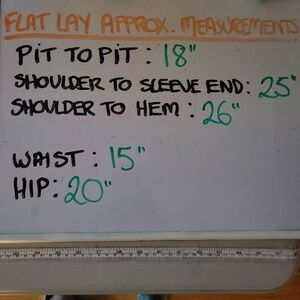 FLAT LAY APPROX. MEASUREMENTS
PIT TO PIT : 18"
SHOULDER TO SLEEVE END: 25"
SHOULDER TO HEM : 26"
WAIST : 15"
HIP: 20"